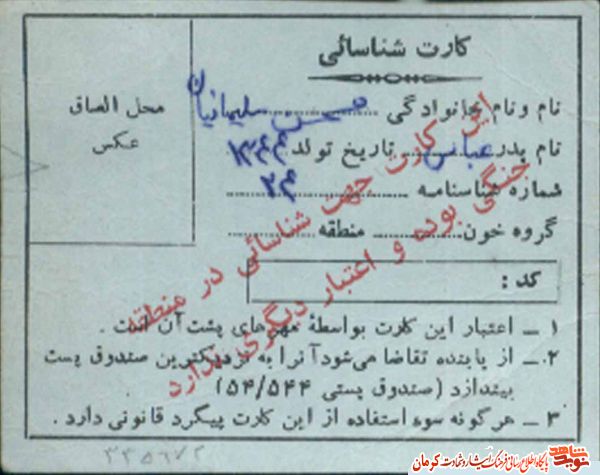 کارت شناسائی
محل الصاق
عکس
نام و نام خانوادگی حسن سلیمانیان
نام پدر عباس تاریخ تولد ۱۳۴۴
شماره شناسنامه ۲۴
گروه خون منطقه
کد :
این کارت جهت شناسائی در منطقه
جنگی بوده و اعتبار دیگری ندارد
۱ ــ اعتبار این کارت بواسطهٔ مهرهای پشت آن است .
۲ ــ از یابنده تقاضا می‌شود آنرا به نزدیکترین صندوق پست
بیندازد (صندوق پستی ۵۴/۵۴۴)
۳ ــ هرگونه سوء استفاده از این کارت پیگرد قانونی دارد .
پایگاه اطلاع رسانی فرهنگ ایثار و شهادت کرمان